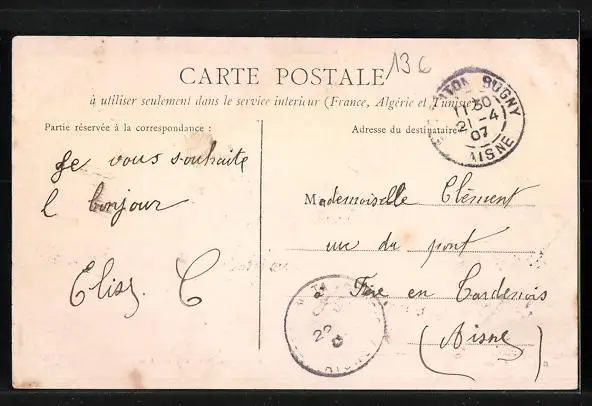 136
CARTE POSTALE
à utiliser seulement dans le service intérieur (France, Algérie et Tunisie)
Partie réservée à la correspondance :
Adresse du destinataire
BUGNY
11 30
21 - 4
07
AISNE
Je vous souhaite
l bonjour
Elise C
Mademoiselle Clément
rue du pont
à Fère en Tardenois
(Aisne)
22